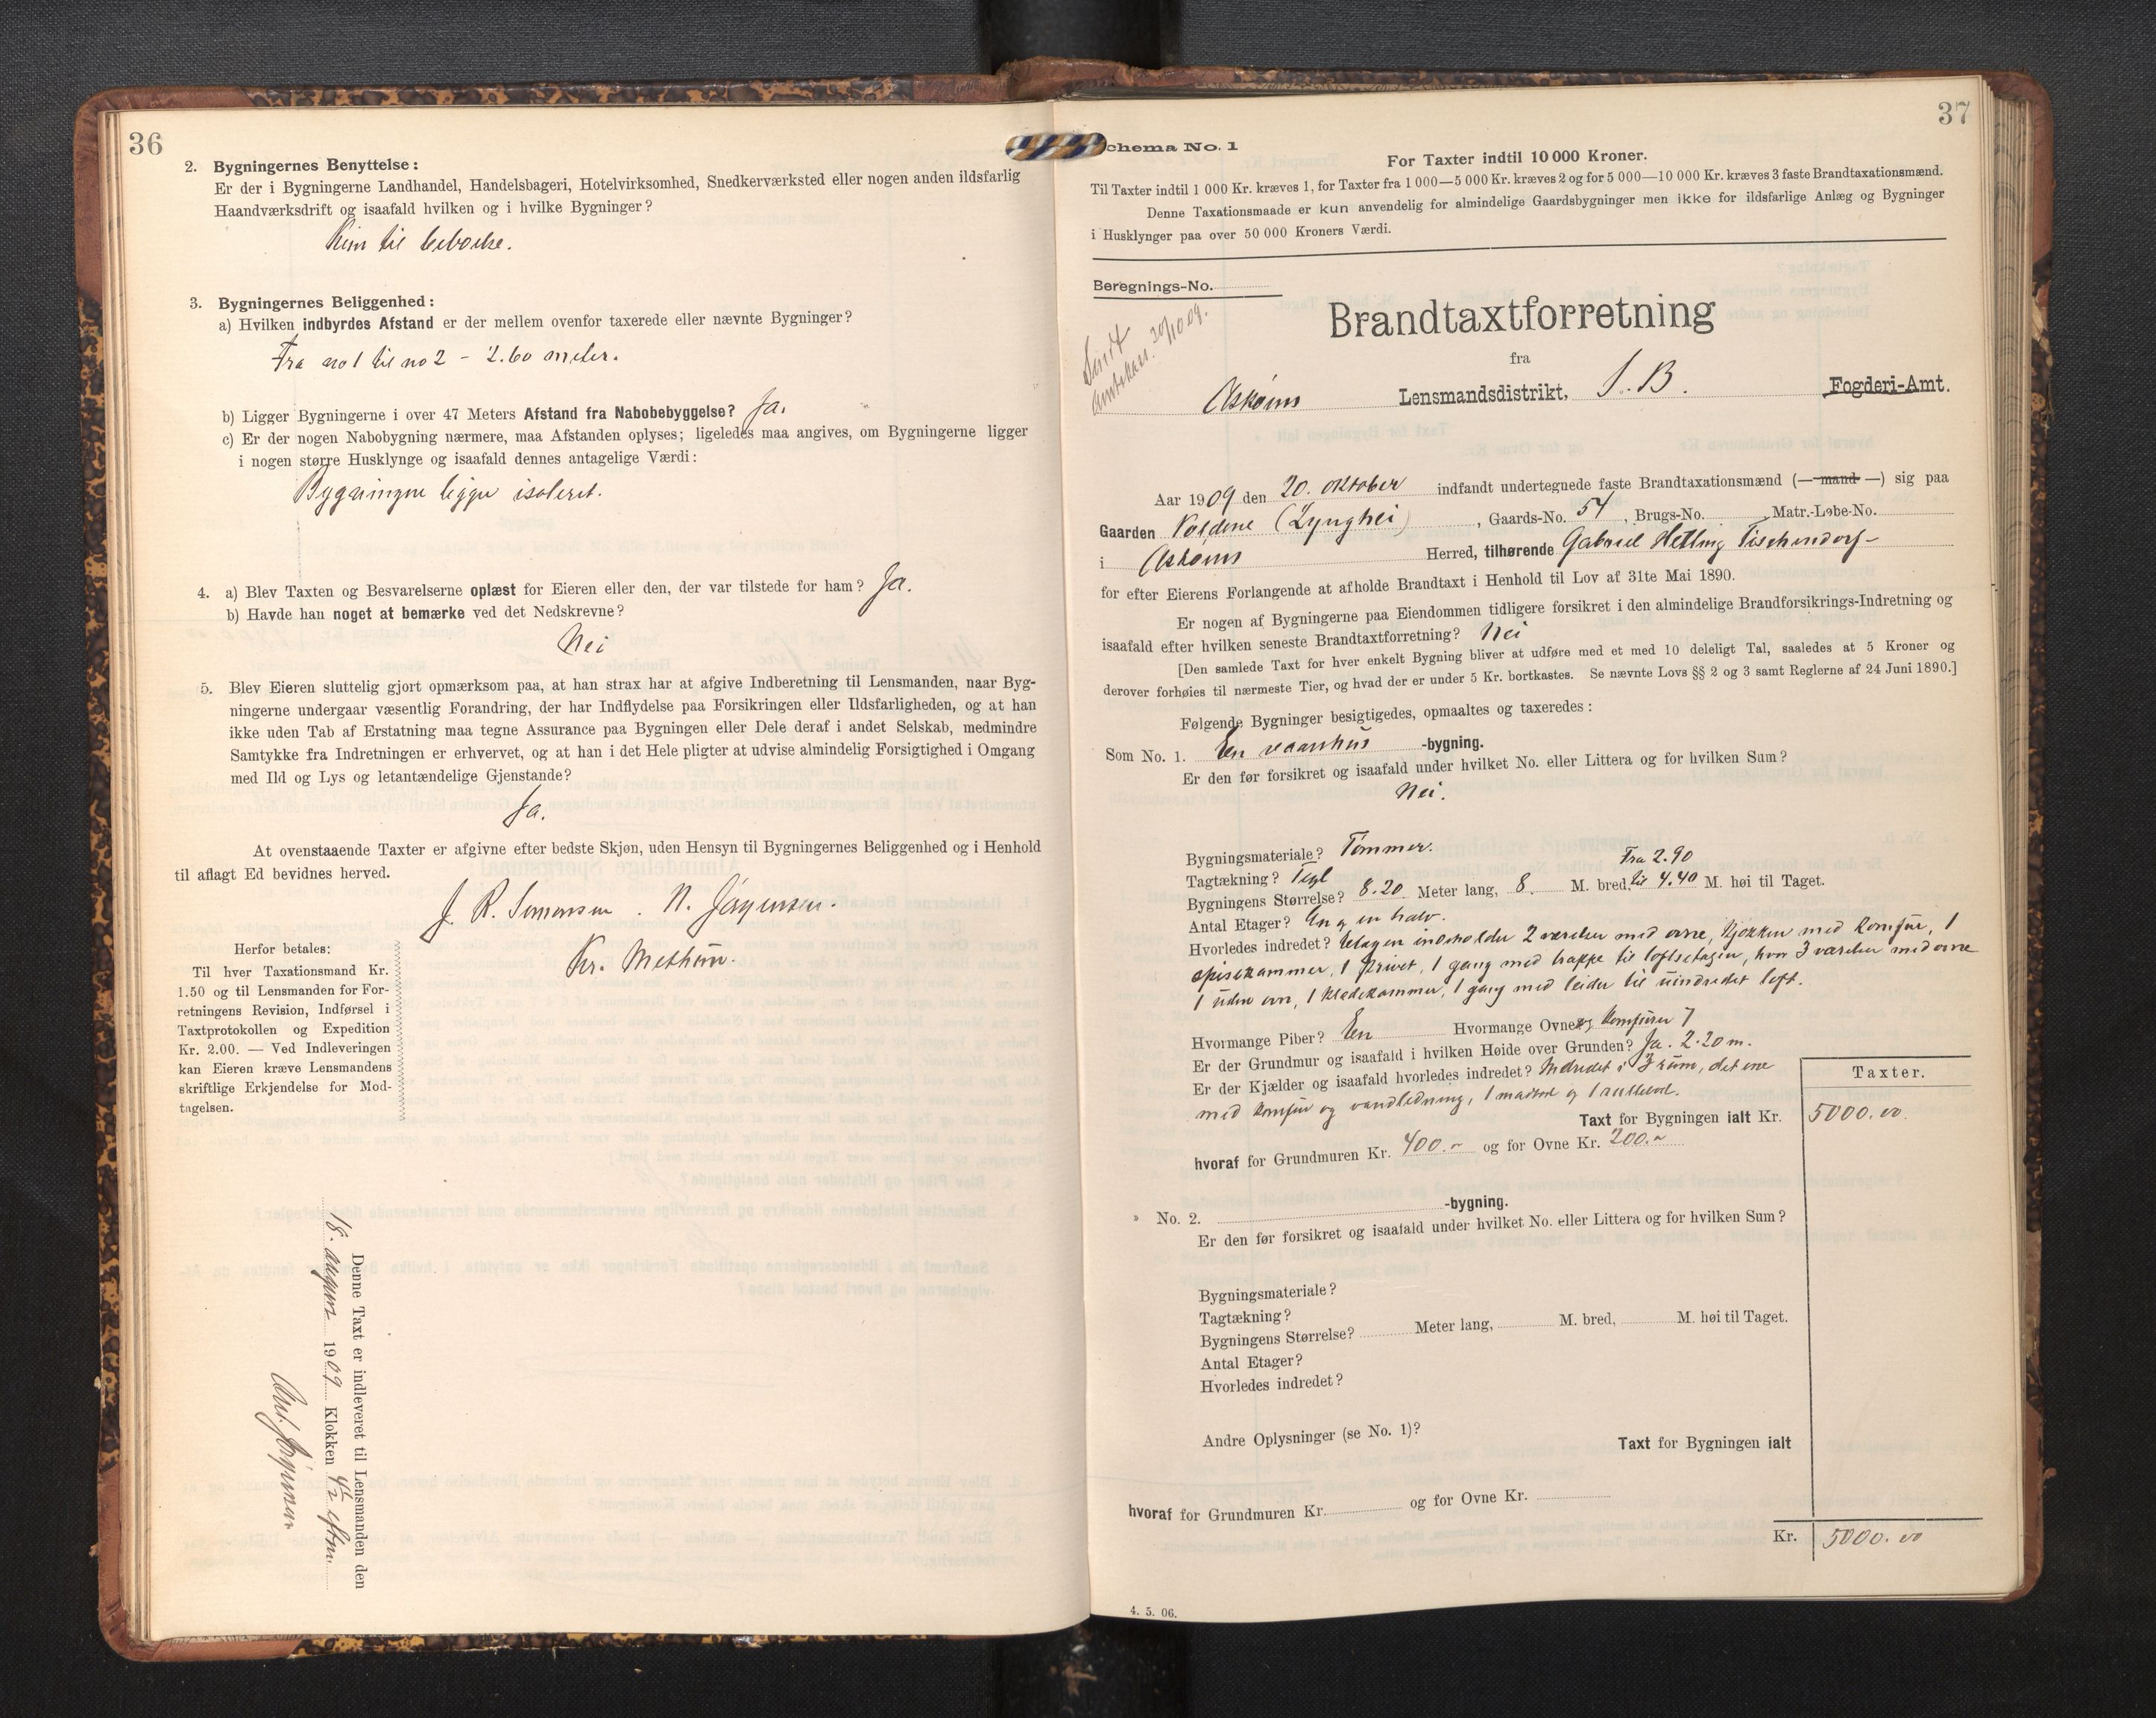 36
2. Bygningernes Benyttelse:
Er der i Bygningerne Landhandel, Handelsbageri, Hotelvirksomhed, Snedkerværksted eller nogen anden ildsfarlig
Haandværksdrift og isaafald hvilken og i hvilke Bygninger?
Kun til beboelse.
3. Bygningernes Beliggenhed:
a) Hvilken indbyrdes Afstand er der mellem ovenfor taxerede eller nævnte Bygninger?
Fra no 1 til no 2 – 2.60 meter.
b) Ligger Bygningerne i over 47 Meters Afstand fra Nabobebyggelse? Ja.
c) Er der nogen Nabobygning nærmere, maa Afstanden oplyses; ligeledes maa angives, om Bygningerne ligger
i nogen større Husklynge og isaafald dennes antagelige Værdi:
Bygningen ligger isoleret.
4. a) Blev Taxten og Besvarelserne oplæst for Eieren eller den, der var tilstede for ham? Ja.
b) Havde han noget at bemærke ved det Nedskrevne?
Nei
5. Blev Eieren sluttelig gjort opmærksom paa, at han strax har at afgive Indberetning til Lensmanden, naar Byg-
ningerne undergaar væsentlig Forandring, der har Indflydelse paa Forsikringen eller Ildsfarligheden, og at han
ikke uden Tab af Erstatning maa tegne Assurance paa Bygningen eller Dele deraf i andet Selskab, medmindre
Samtykke fra Indretningen er erhvervet, og at han i det Hele pligter at udvise almindelig Forsigtighed i Omgang
med Ild og Lys og letantændelige Gjenstande?
Ja.
At ovenstaaende Taxter er afgivne efter bedste Skjøn, uden Hensyn til Bygningernes Beliggenhed og i Henhold
til aflagt Ed bevidnes herved.
J. R. Simonsen. N. Jørgensen.
Kr. Methun.
Herfor betales:
Til hver Taxationsmand Kr.
1.50 og til Lensmanden for For-
retningens Revision, Indførsel i
Taxtprotokollen og Expedition
Kr. 2.00. — Ved Indleveringen
kan Eieren kræve Lensmandens
skriftlige Erkjendelse for Mod-
tagelsen.
Denne Taxt er indleveret til Lensmanden den
18. august 1909 Klokken 4½ eftm.
Jørgensen
37
Schema No. 1
For Taxter indtil 10 000 Kroner.
Til Taxter indtil 1 000 Kr. kræves 1, for Taxter fra 1 000—5 000 Kr. kræves 2 og for 5 000—10 000 Kr. kræves 3 faste Brandtaxationsmænd.
Denne Taxationsmaade er kun anvendelig for almindelige Gaardsbygninger men ikke for ildsfarlige Anlæg og Bygninger
i Husklynger paa over 50 000 Kroners Værdi.
Beregnings-No.
Sendt
amtskass. 30/10 09.
Brandtaxtforretning
fra
Askøens Lensmandsdistrikt, S. B. Fogderi-Amt.
Aar 1909 den 20. oktober indfandt undertegnede faste Brandtaxationsmænd (— mand —) sig paa
Gaarden Voldene (Lynghei), Gaards-No. 54, Brugs-No. , Matr.-Løbe-No.
i Askøens Herred, tilhørende Gabriel Hetling Tischendorf
for efter Eierens Forlangende at afholde Brandtaxt i Henhold til Lov af 31te Mai 1890.
Er nogen af Bygningerne paa Eiendommen tidligere forsikret i den almindelige Brandforsikrings-Indretning og
isaafald efter hvilken seneste Brandtaxtforretning? Nei
[Den samlede Taxt for hver enkelt Bygning bliver at udføre med et med 10 deleligt Tal, saaledes at 5 Kroner og
derover forhøies til nærmeste Tier, og hvad der er under 5 Kr. bortkastes. Se nævnte Lovs §§ 2 og 3 samt Reglerne af 24 Juni 1890.]
Følgende Bygninger besigtigedes, opmaaltes og taxeredes:
Som No. 1. En vaanhus -bygning.
Er den før forsikret og isaafald under hvilket No. eller Littera og for hvilken Sum?
Nei.
Bygningsmateriale? Tømmer.
Tagtækning? Tegl
Bygningens Størrelse? 8.20 Meter lang, 8. M. bred, Fra 2.90 til 4.40 M. høi til Taget.
Antal Etager? En og en halv.
Hvorledes indredet? Etagen indeholder 2 værelser med ovne, kjøkken med komfur, 1
spisekammer, 1 privet, 1 gang med trappe til loftsetagen, hvor 3 værelser med ovne
1 uden ovn, 1 klædekammer, 1 gang med leider til uindredet loft.
Hvormange Piber? En Hvormange Ovne og komfurer 7
Er der Grundmur og isaafald i hvilken Høide over Grunden? Ja. 2.20 m.
Er der Kjælder og isaafald hvorledes indredet? Indredet i 3 rum, det ene
med komfur og vandledning, 1 madbod og 1 rullebod.
Taxter.
Taxt for Bygningen ialt Kr. 5000.00
hvoraf for Grundmuren Kr. 400.– og for Ovne Kr. 200.–
No. 2. -bygning.
Er den før forsikret og isaafald under hvilket No. eller Littera og for hvilken Sum?
Bygningsmateriale?
Tagtækning?
Bygningens Størrelse? Meter lang, M. bred, M. høi til Taget.
Antal Etager?
Hvorledes indredet?
Andre Oplysninger (se No. 1)?
Taxt for Bygningen ialt
hvoraf for Grundmuren Kr. og for Ovne Kr.
Kr. 5000.00
4. 5. 06.